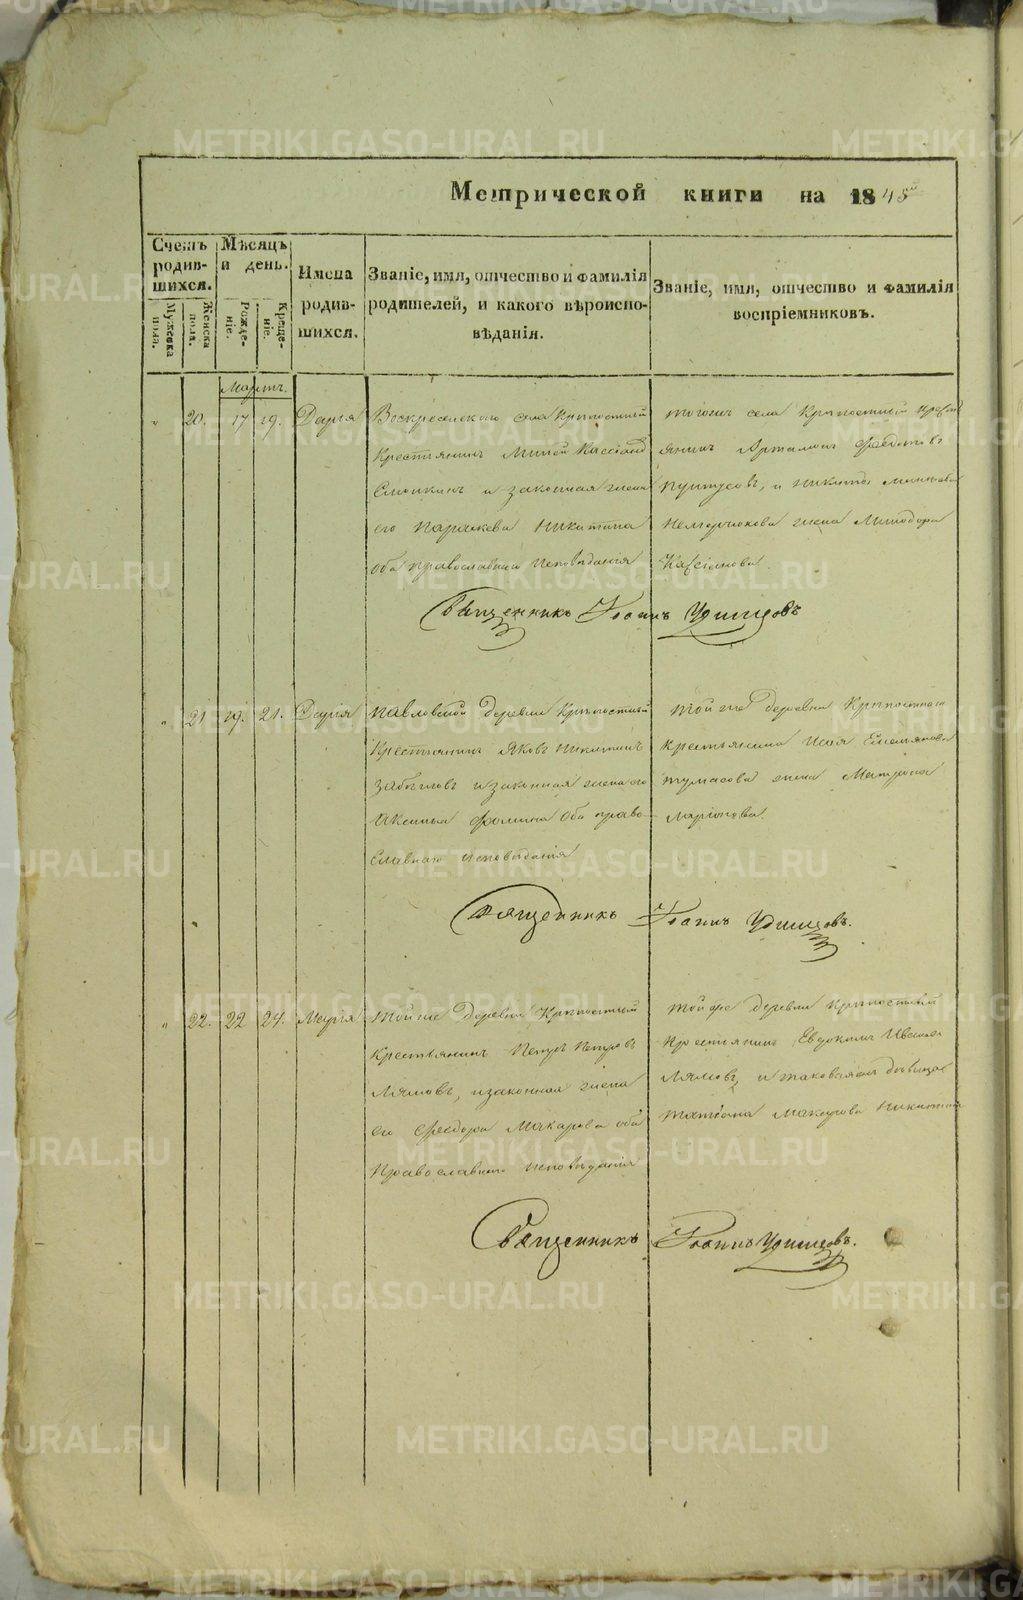 Метрической книги на 1845й
Счетъ родив-шихся.
Мужеска пола.
Женска пола.
Мѣсяцъ и день.
Рожде-ніе.
Креще-ніе.
Имена родив-шихся.
Званіе, имя, отчество и фамилія
родителей, и какого вѣроиспо-
вѣданія.
Званіе, имя, отчество и фамилія
воспріемниковъ.
Мартъ.
20. 17 19. Дарія
Воскресенскаго села Крѣпостный
Крестьянинъ Миней
и законная жена
его Параскева Никитина
оба православнаго исповѣданія
тогожъ села Крѣпостный
Артамонъ Федотовъ
и Никиты
жена Минодора
Священникъ Іоаннъ Удинцовъ
21 19. 21. Дарія
Павловской деревни Крѣпостный
Крестьянинъ Яковъ Никитинъ
и законная жена его
Аксинья Фомина оба право-
славнаго исповѣданія
той же деревни Крѣпостнаго
крестьянина Исая Емельянова
жена Матрона
Ларіонова.
Священникъ Іоаннъ Удинцовъ.
22. 22 24. Марія
той же деревни Крѣпостный
Крестьянинъ Петръ Петровъ
Лямовъ, и законная жена
его Федора Макарова оба
Православнаго исповѣданія
той же деревни крѣпостный
крестьянинъ Евдокимъ Ивановъ
Лямовъ, и таковая же дѣвица
Татіана Макарова Никитина
Священникъ Іоаннъ Удинцовъ.
METRIKI.GASO-URAL.RU